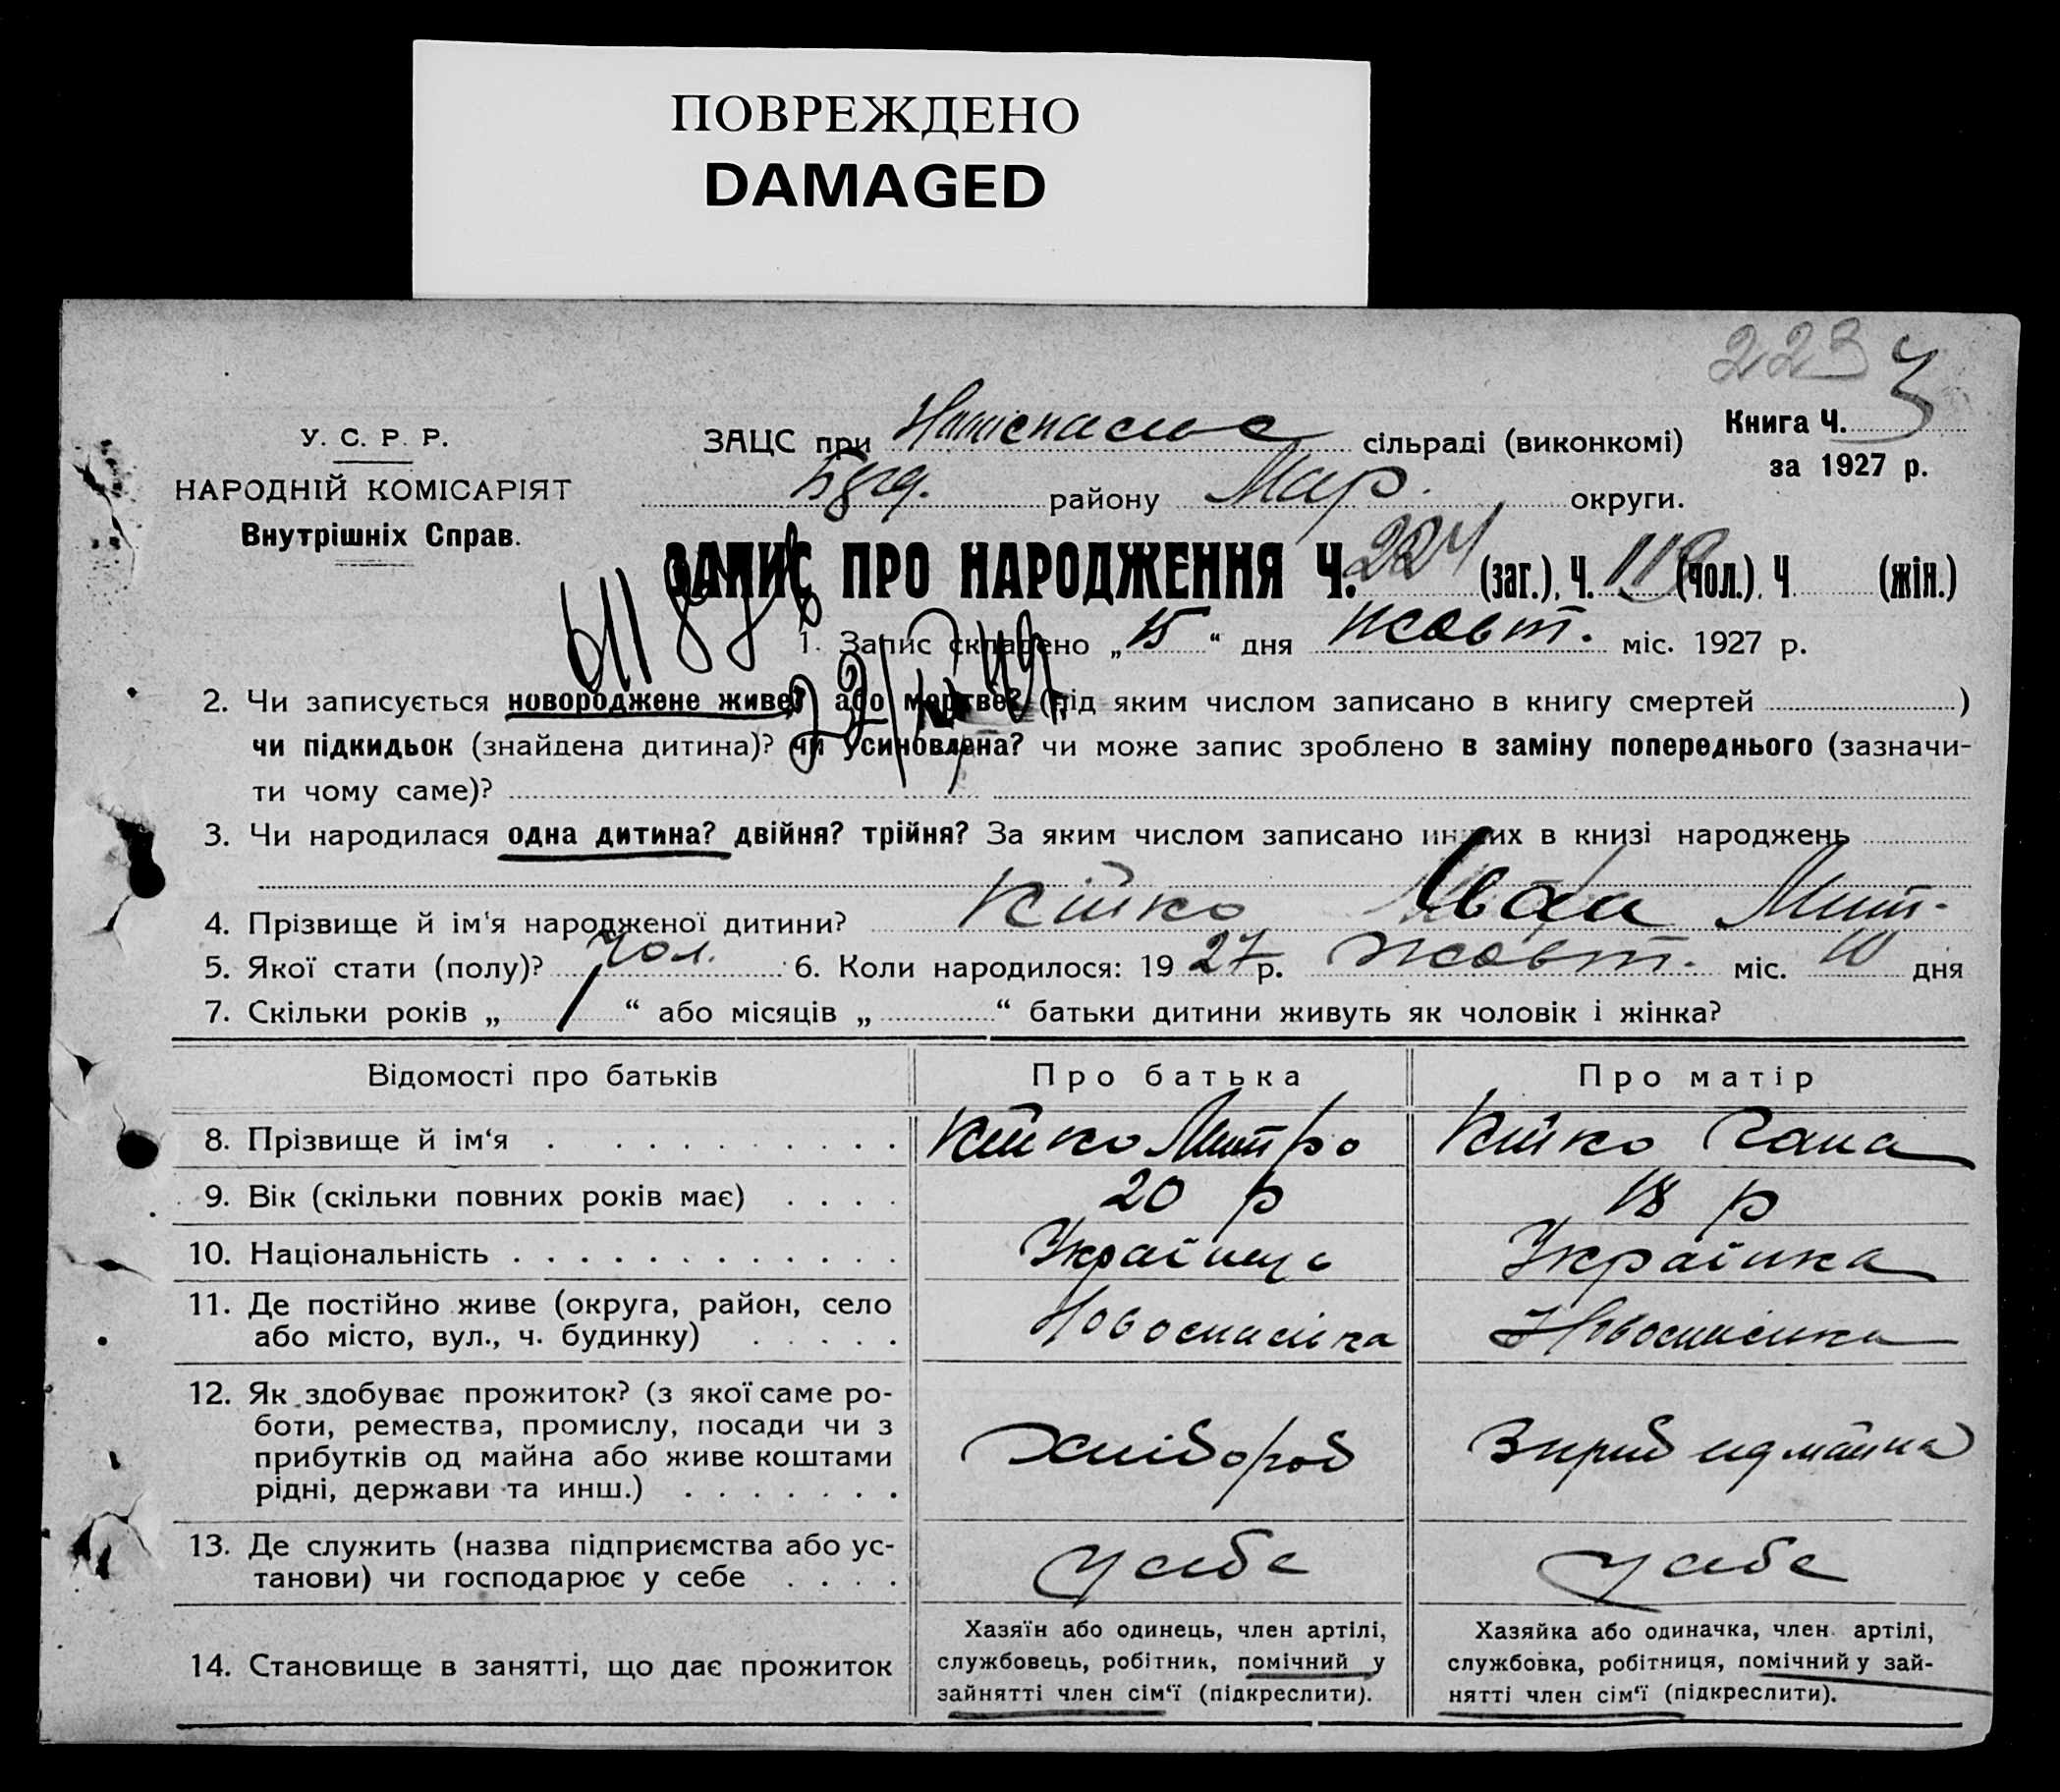 ПОВРЕЖДЕНО
DAMAGED
223
У. С. Р. Р.
НАРОДНІЙ КОМІСАРІЯТ
Внутрішніх Справ.
ЗАЦС при сільраді (виконкомі)
району Мар. округи.
Книга Ч. 3
за 1927 р.
ЗАПИС ПРО НАРОДЖЕННЯ Ч. 224 (заг.), Ч. 118 (чол.), Ч. (жін.)
1. Запис складено „15“ дня жовт. міс. 1927 р.
2. Чи записується новороджене живе? або мертве? (під яким числом записано в книгу смертей )
чи підкидьок (знайдена дитина)? чи усиновлена? чи може запис зроблено в заміну попереднього (зазначи-
ти чому саме)?
3. Чи народилася одна дитина? двійня? трійня? За яким числом записано инших в книзі народжень
4. Прізвище й ім‘я народженої дитини? Кійко Мит.
5. Якої стати (полу)? чол. 6. Коли народилося: 1927 р. жовт. міс. 10 дня
7. Скільки років „ 1 “ або місяців „ “ батьки дитини живуть як чоловік і жінка?
Відомості про батьків Про батька Про матір
8. Прізвище й ім‘я Кійко Митро Кійко Гана
9. Вік (скільки повних років має) 20 р 18 р
10. Національність Українець Українка
11. Де постійно живе (округа, район, село
або місто, вул., ч. будинку) Новоспасівка Новоспасівка
12. Як здобуває прожиток? (з якої саме ро-
боти, ремества, промислу, посади чи з
прибутків од майна або живе коштами
рідні, держави та инш.) Хлібороб
13. Де служить (назва підприємства або ус-
танови) чи господарює у себе у себе у себе
14. Становище в занятті, що дає прожиток
Хазяїн або одинець, член артілі,
службовець, робітник, помічний у
зайнятті член сім‘ї (підкреслити).
Хазяйка або одиначка, член артілі,
службовка, робітниця, помічний у зай-
нятті член сім‘ї (підкреслити).